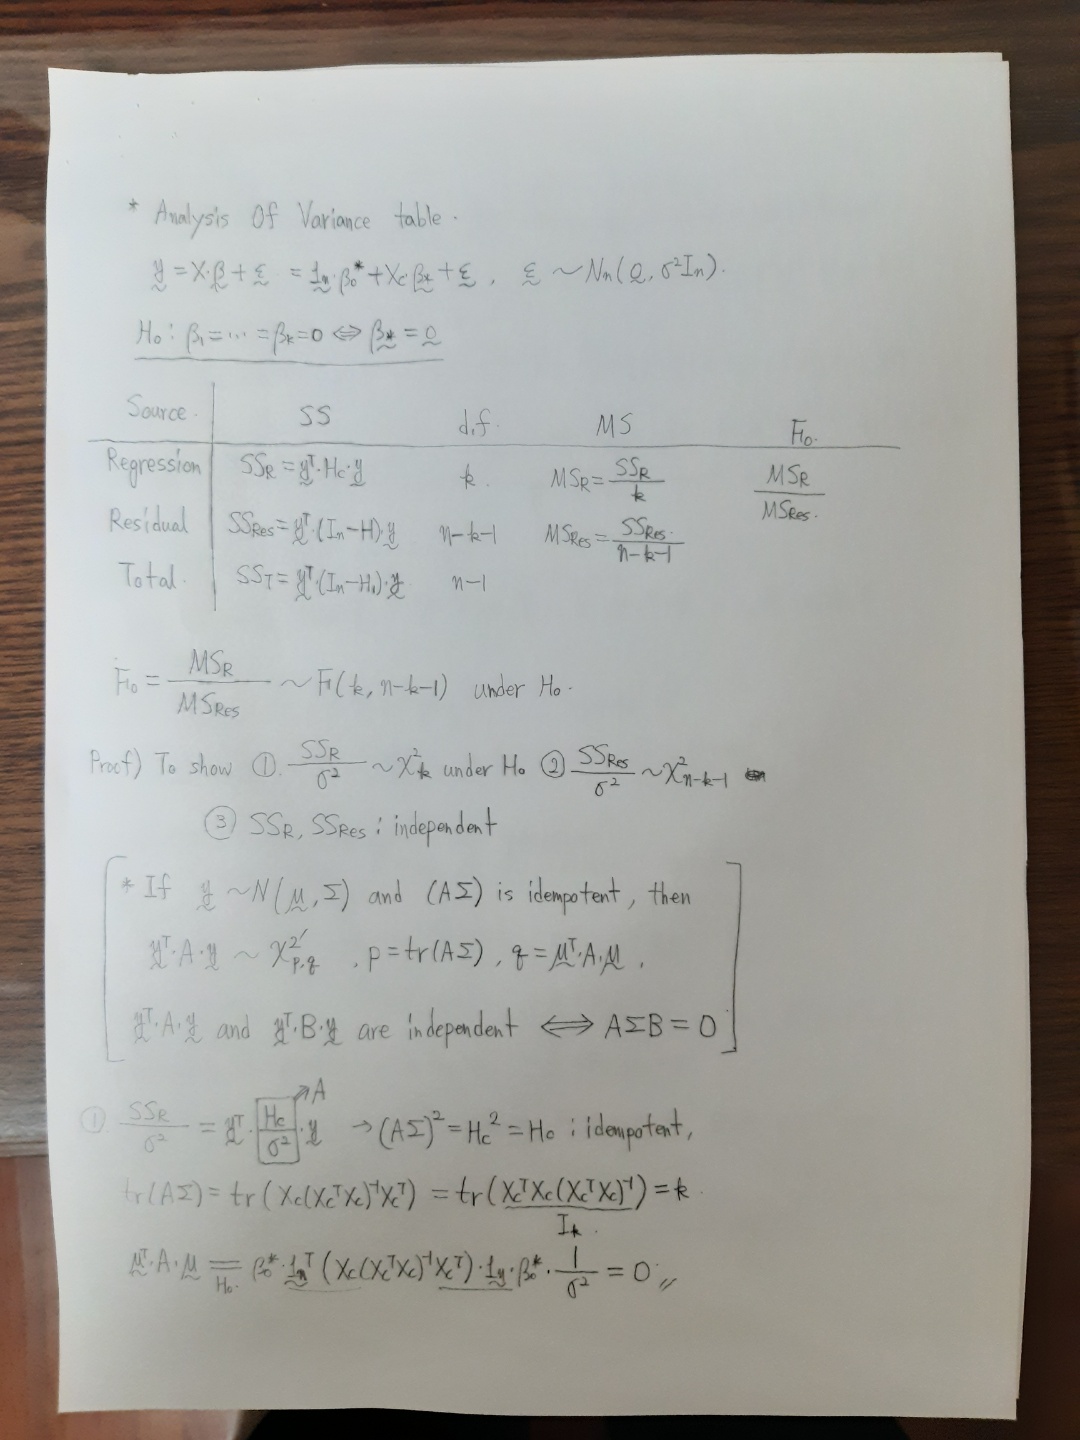 * Analysis Of Variance table.
y = X·β + ε = 1n·β0* + Xc·β* + ε, ε ~ Nn(0, σ²In).
H0 : β1 = ··· = βk = 0 ⇔ β* = 0
Source. SS d.f. MS F0.
Regression SSR = yᵀ·Hc·y k. MSR = SSR/k MSR/MSRes.
Residual SSRes = yᵀ·(In−H)·y n−k−1 MSRes = SSRes./n−k−1
Total. SST = yᵀ·(In−H1)·y n−1
F0 = MSR/MSRES ~ F(k, n−k−1) under H0.
Proof) To show ①. SSR/σ² ~ χ²k under H0 ② SSRes/σ² ~ χ²n−k−1
③ SSR, SSRes : independent
* If y ~ N(μ, Σ) and (AΣ) is idempotent, then
yᵀ·A·y ~ χ²′p,q , p = tr(AΣ), q = μᵀ·A·μ,
yᵀ·A·y and yᵀ·B·y are independent ⇔ AΣB = 0
① SSR/σ² = yᵀ·Hc/σ²·y ↗A → (AΣ)² = Hc² = Hc : idempotent,
tr(AΣ) = tr(Xc(XcᵀXc)⁻¹Xcᵀ) = tr(XcᵀXc(XcᵀXc)⁻¹) = k.
Ik.
μᵀ·A·μ = β0*·1nᵀ(Xc(XcᵀXc)⁻¹Xcᵀ)·1n·β0*·1/σ² = 0,,
H0.